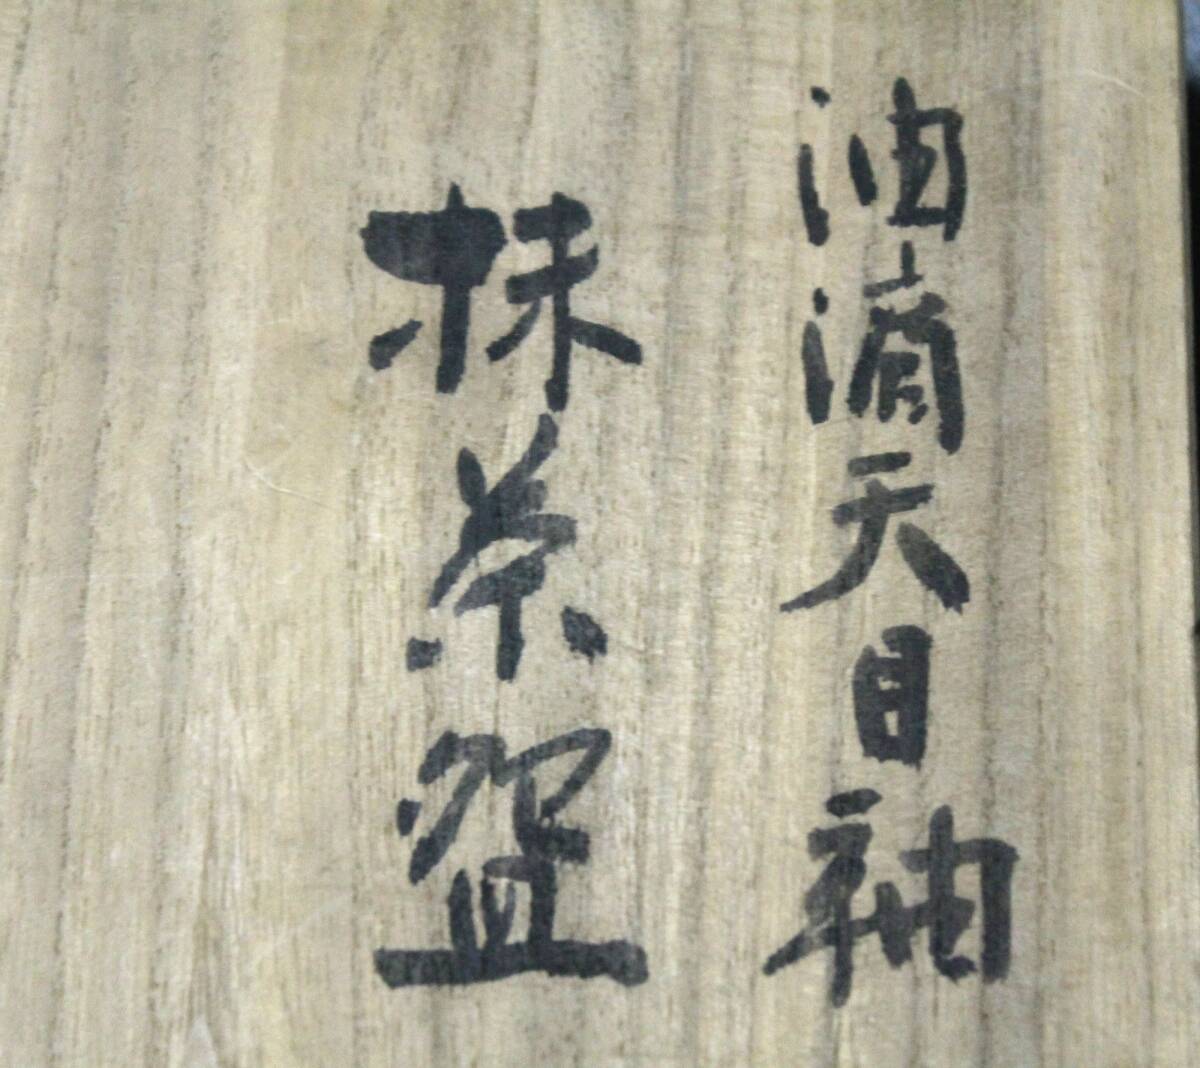 油滴天目釉
抹茶盌